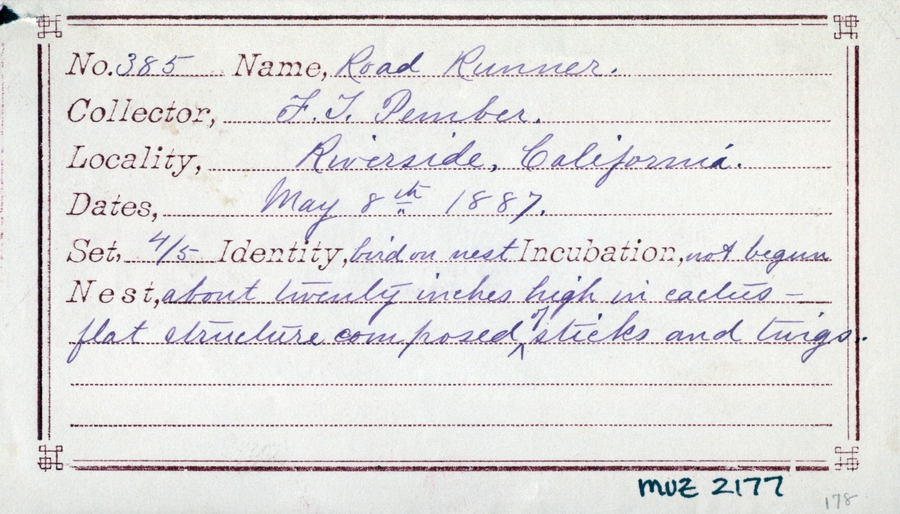 No. 385 Name, Road Runner.
Collector, F. T. Pember.
Locality, Riverside, California.
Dates, May 8th 1887.
Set, 4/5 Identity, bird on nest Incubation, not begun
Nest, about twenty inches high in cactus –
flat structure composed of sticks and twigs.
MVZ 2177
178